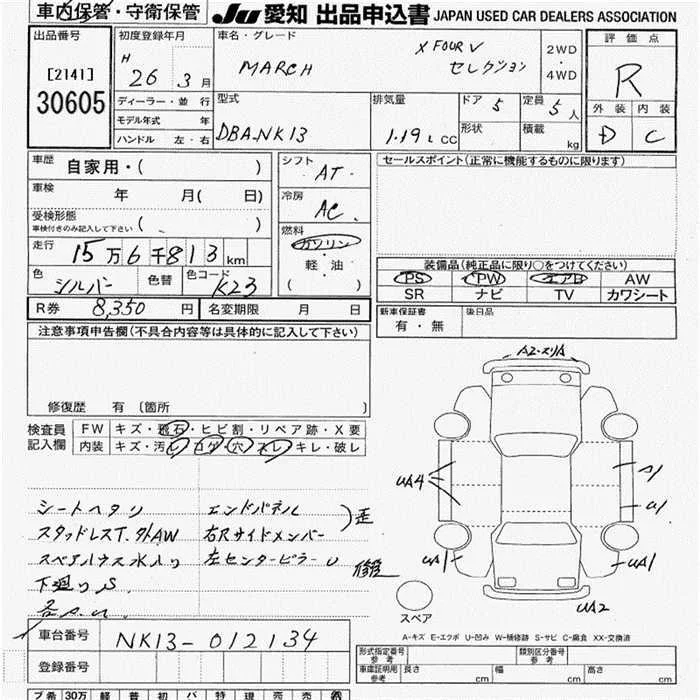 車内保管・守衛保管 JU 愛知 出品申込書 JAPAN USED CAR DEALERS ASSOCIATION
出品番号 初度登録年月 車名・グレード 評価点
[2141] H 26 3月 MARCH X FOUR V セレクション 2WD ・ 4WD R
30605 ディーラー・並 行 型式 排気量 ドア 定員 外装 内装
モデル年式 年 DBA-NK13 1.19L CC 5 5人 D C
ハンドル 左・右 形状 積載 kg
車歴 自家用・( ) シフト AT セールスポイント(正常に機能するものに限ります)
車検 年 月( 日) 冷房 AC
受検形態 ( )
車検付きのみ記入して下さい
走行 15万6千813km 燃料 ガソリン
色 シルバー 色替 色コード K23 軽・油 ( )
装備品(純正品に限り○をつけてください)
PS PW エアB AW
SR ナビ TV カワシート
R券 8,350円 名変期限 月 日 新車保証書 有・無 後日品
注意事項申告欄(不具合内容等は具体的に記入して下さい)
修復歴 有 〔箇所 〕
検査員記入欄 FW キズ・飛石・ヒビ割・リペア跡・X要
内装 キズ・汚レ・コゲ・穴・スレ・キレ・破レ
シートヘタリ エンドパネル
スタッドレスT. 外AW 右Rサイドメンバー 歪
スペアハウス水入り 左センターピラーU 修歴
下廻りS
A2・スリA
UA4 A1
U1
UA1 UA1
UA2
スペア
A-キズ E-エクボ U-凹み W-補修跡 S-サビ C-腐食 XX-交換済
車台番号 NK13-012134
登録番号
形式指定番号 参考 類別区分番号 参考
車庫証明用 参考 長さ cm 幅 cm 高さ cm